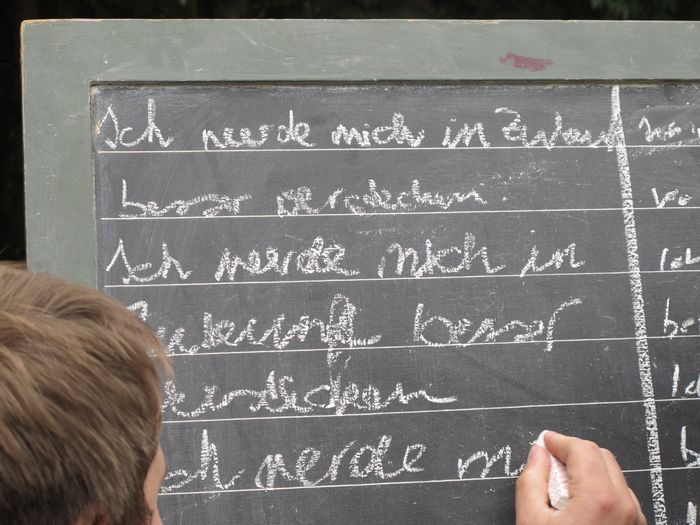 Ich werde mich in Zukunft
besser verstecken.
Ich werde mich in
Zukunft besser
verstecken
Ich werde m